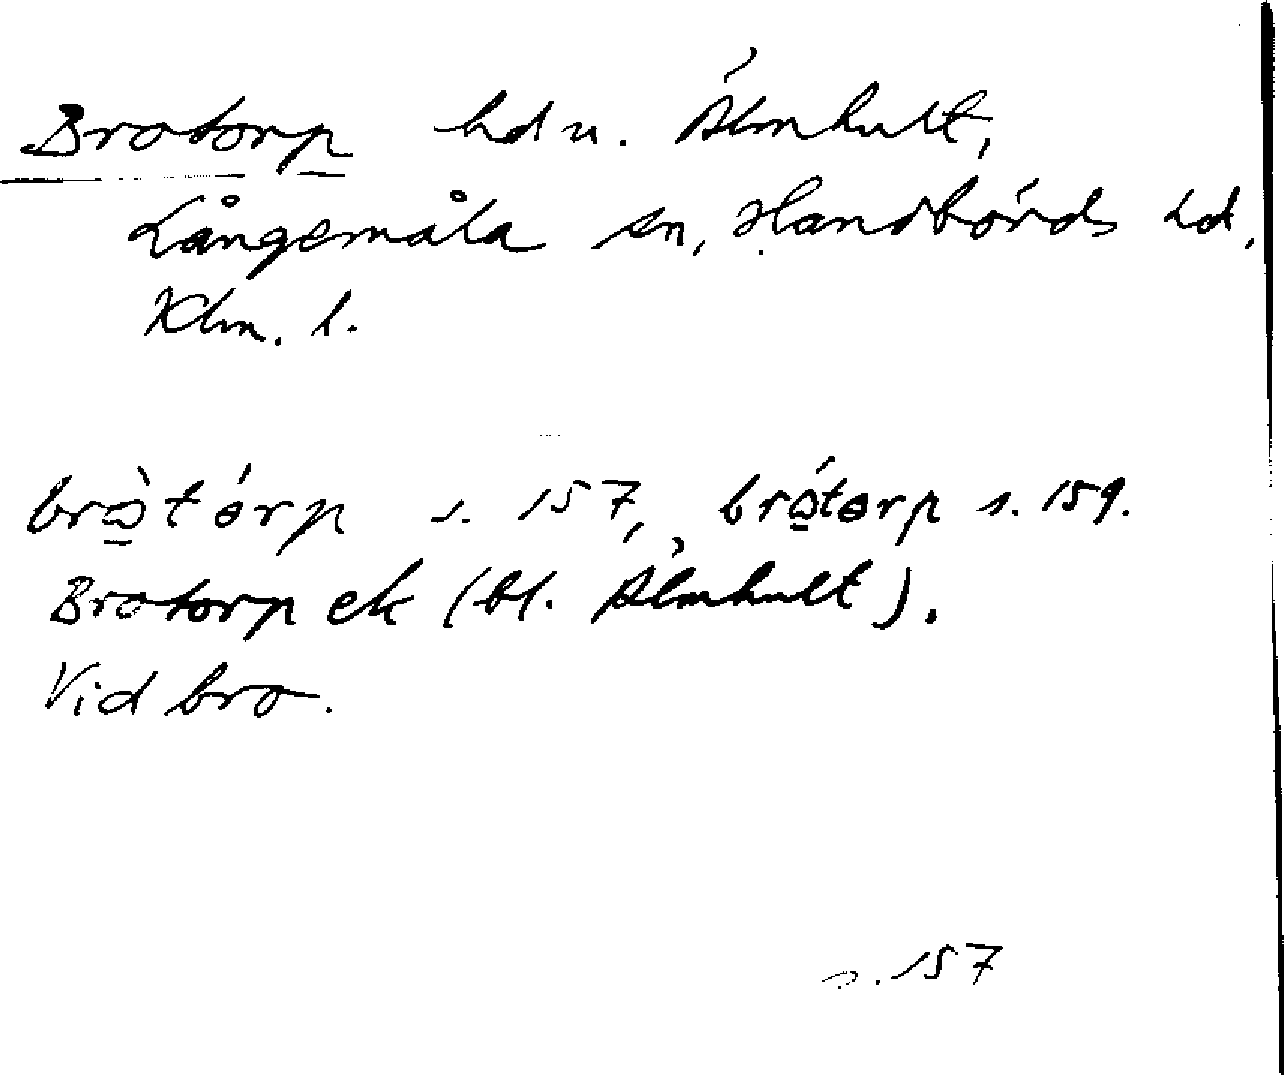 Brotorp hd u. Älmhult,
Långemåla sn, Handbörds hd,
Klm. l.
bròtórp s. 157, brótorp s. 159.
Brotorp ek (bl. Älmhult).
Vid bro.
s. 157